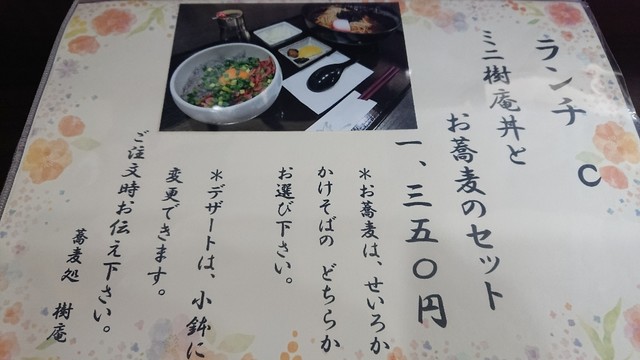 ランチ C
ミニ樹庵丼と
お蕎麦のセット
一、三五〇円
＊お蕎麦は、せいろか
かけそばの どちらか
お選び下さい。
＊デザートは、小鉢に
変更できます。
ご注文時お伝え下さい。
蕎麦処 樹庵